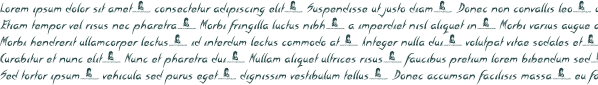 Lorem ipsum dolor sit amet, consectetur adipiscing elit. Suspendisse ut justo diam. Donec non convallis leo.
Etiam tempor vel risus nec pharetra. Morbi fringilla luctus nibh, a imperdiet nisl aliquet in. Morbi varius augue
Morbi hendrerit ullamcorper lectus, id interdum lectus commodo at. Integer nulla dui, volutpat vitae sodales et,
Curabitur et nunc elit. Nunc et pharetra dui. Nullam aliquet ultrices risus, faucibus pretium lorem bibendum sed.
Sed tortor ipsum, vehicula sed purus eget, dignissim vestibulum tellus. Donec accumsan facilisis massa, eu